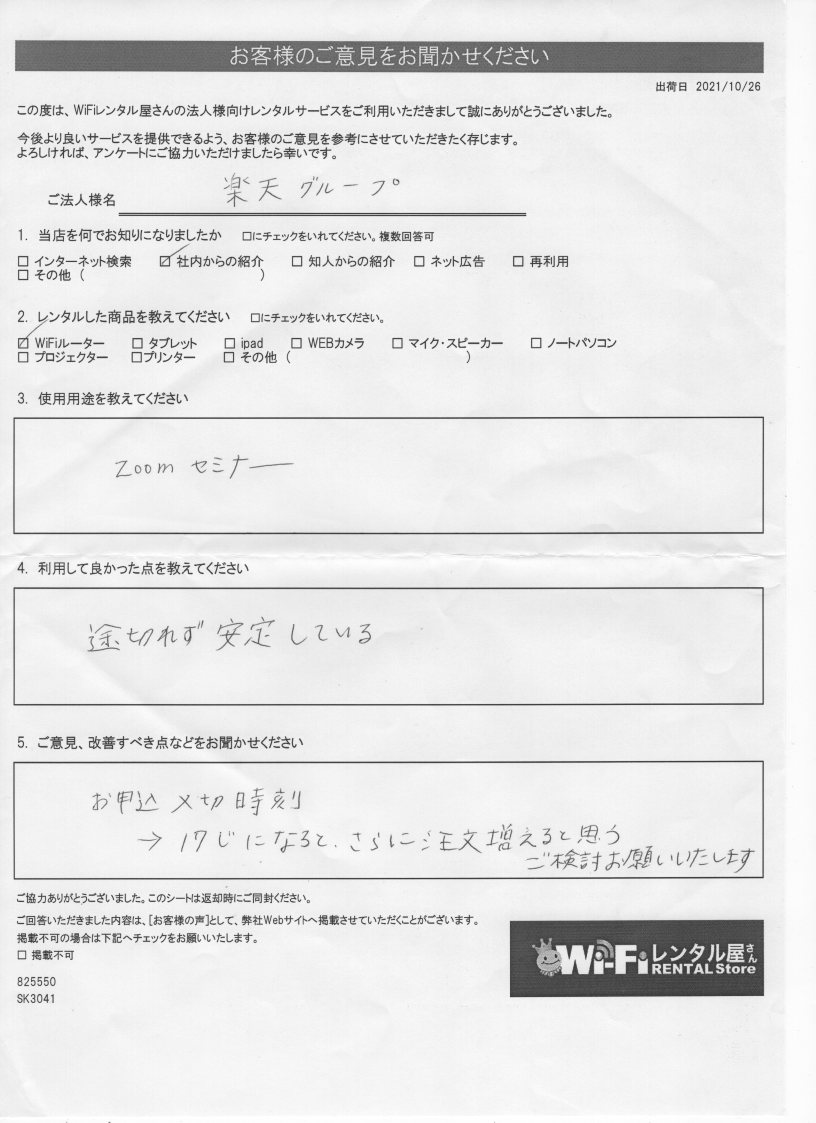 お客様のご意見をお聞かせください
出荷日 2021/10/26
この度は、WiFiレンタル屋さんの法人様向けレンタルサービスをご利用いただきまして誠にありがとうございました。
今後より良いサービスを提供できるよう、お客様のご意見を参考にさせていただきたく存じます。
よろしければ、アンケートにご協力いただけましたら幸いです。
ご法人様名 楽天グループ
1. 当店を何でお知りになりましたか □にチェックをいれてください。複数回答可
□ インターネット検索 ☑ 社内からの紹介 □ 知人からの紹介 □ ネット広告 □ 再利用
□ その他 ( )
2. レンタルした商品を教えてください □にチェックをいれてください。
☑ WiFiルーター □ タブレット □ ipad □ WEBカメラ □ マイク・スピーカー □ ノートパソコン
□ プロジェクター □プリンター □ その他 ( )
3. 使用用途を教えてください
Zoom セミナー
4. 利用して良かった点を教えてください
途切れず 安定している
5. ご意見、改善すべき点などをお聞かせください
お申込 〆切時刻
→ 17じになると、さらに注文増えると思う
ご検討お願いいたします
ご協力ありがとうございました。このシートは返却時にご同封ください。
ご回答いただきました内容は、[お客様の声]として、弊社Webサイトへ掲載させていただくことがございます。
掲載不可の場合は下記へチェックをお願いいたします。
□ 掲載不可
Wi-Fiレンタル屋さん
RENTAL Store
825550
SK3041